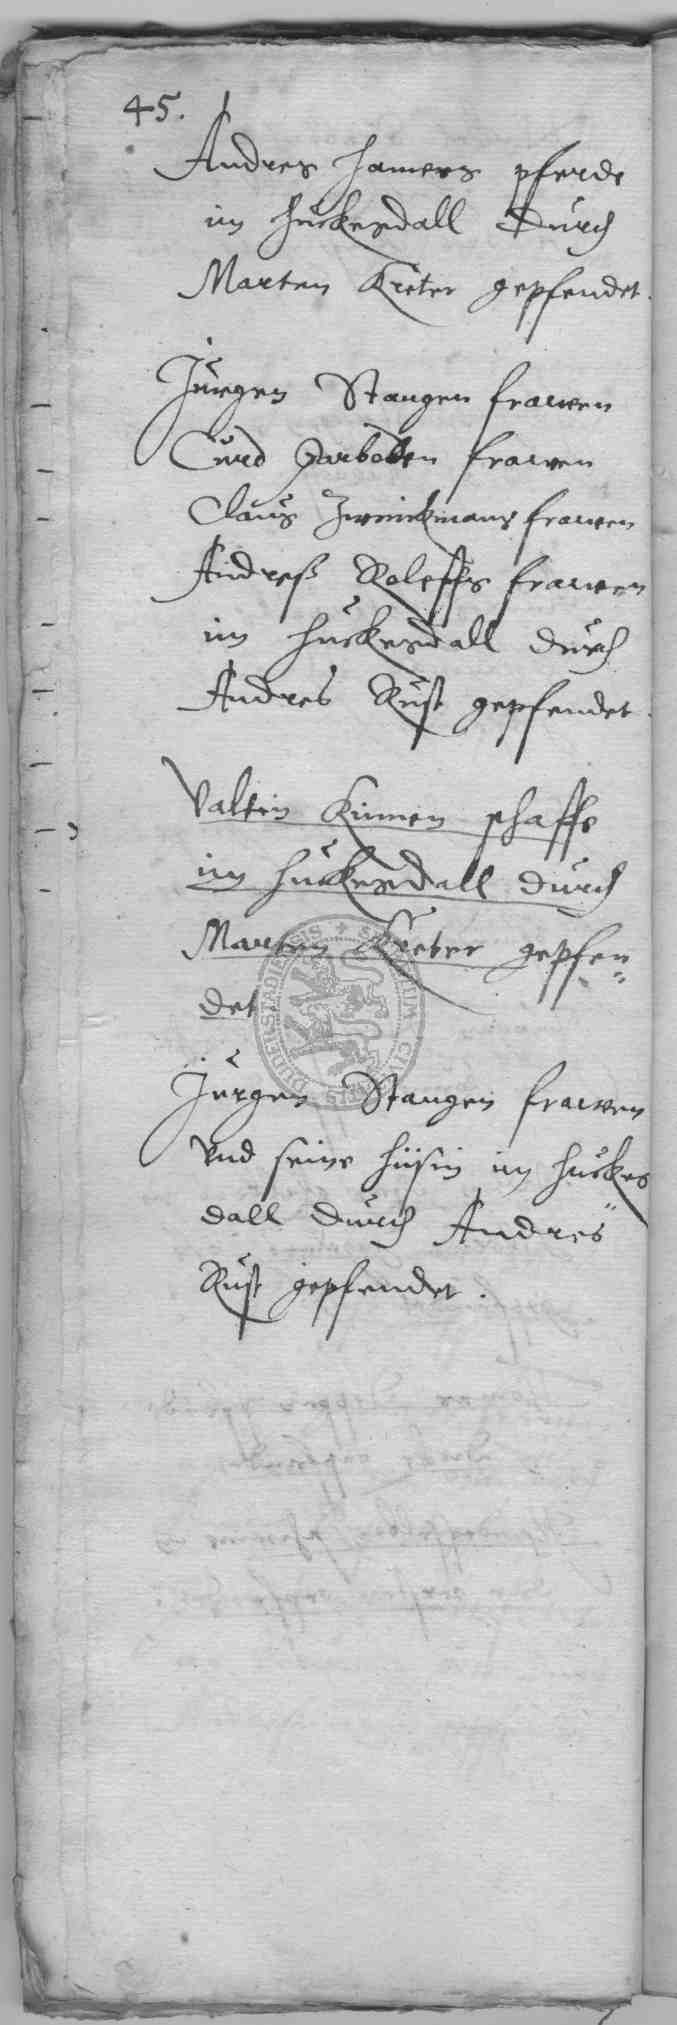 45.
Andres Hamers pferde
im Huckesdall Durch
Marten Kreter gepfendet.
Jurgen Stangen frawen
Curd Parboten frawen
Claus Zwenckmans frawen
Andreß Roleffs frawen
im Huckesdall durch
Andres Rust gepfendet.
Valtin Kinnen schaffe
im Huckesdall durch
Marten Kreter gepfen=
det
Jurgen Stangen frawen
Vnd seine hüsin im Huckes
dall durch Andres
Rust gepfendet.
SIGILLUM CIVITATIS DUDERSTADIENSIS